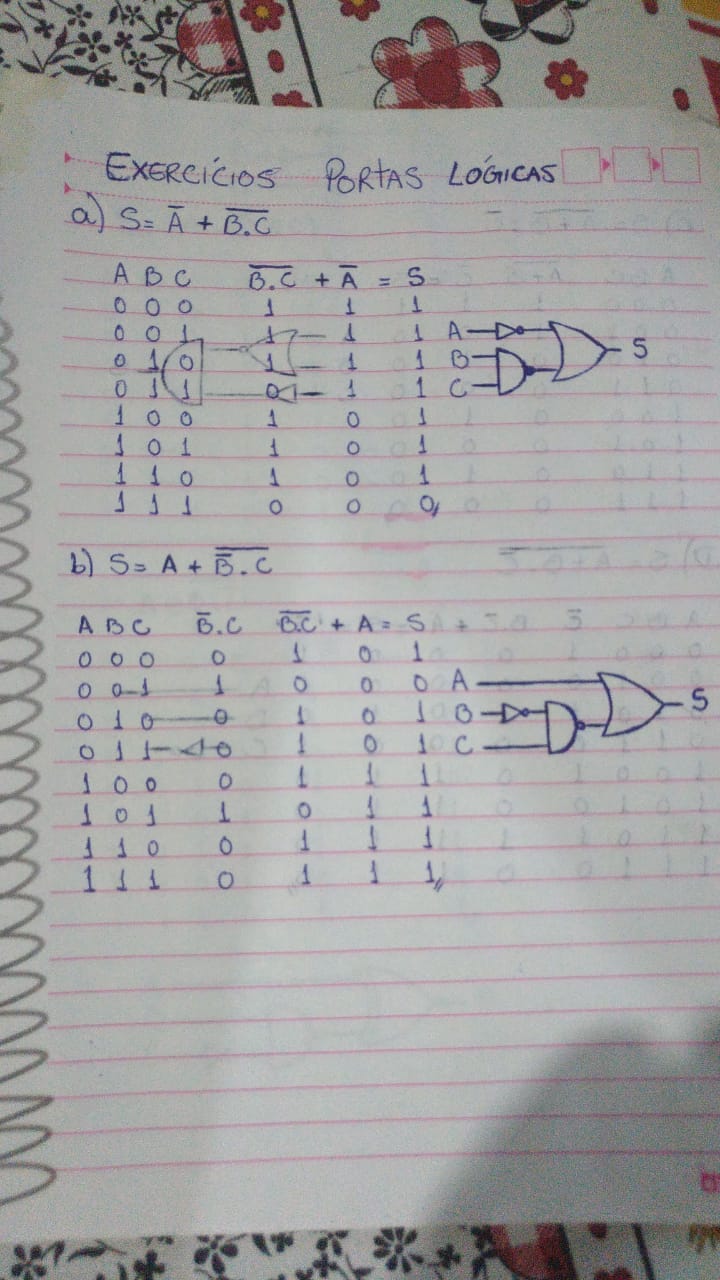 EXERCÍCIOS PORTAS LÓGICAS
a) S= A̅ + B̅.̅C̅
A B C B̅.̅C̅ + A̅ = S
0 0 0 1 1 1
0 0 1 1 1 1 A
0 1 0 1 1 1 B S
0 1 1 0 1 1 C
1 0 0 1 0 1
1 0 1 1 0 1
1 1 0 1 0 1
1 1 1 0 0 0
b) S= A + B̅̅.̅C̅
A B C B̅.C B̅̅.̅C̅ + A = S
0 0 0 0 1 0 1
0 0 1 1 0 0 0 A
0 1 0 0 1 0 1 B S
0 1 1 0 1 0 1 C
1 0 0 0 1 1 1
1 0 1 1 0 1 1
1 1 0 0 1 1 1
1 1 1 0 1 1 1